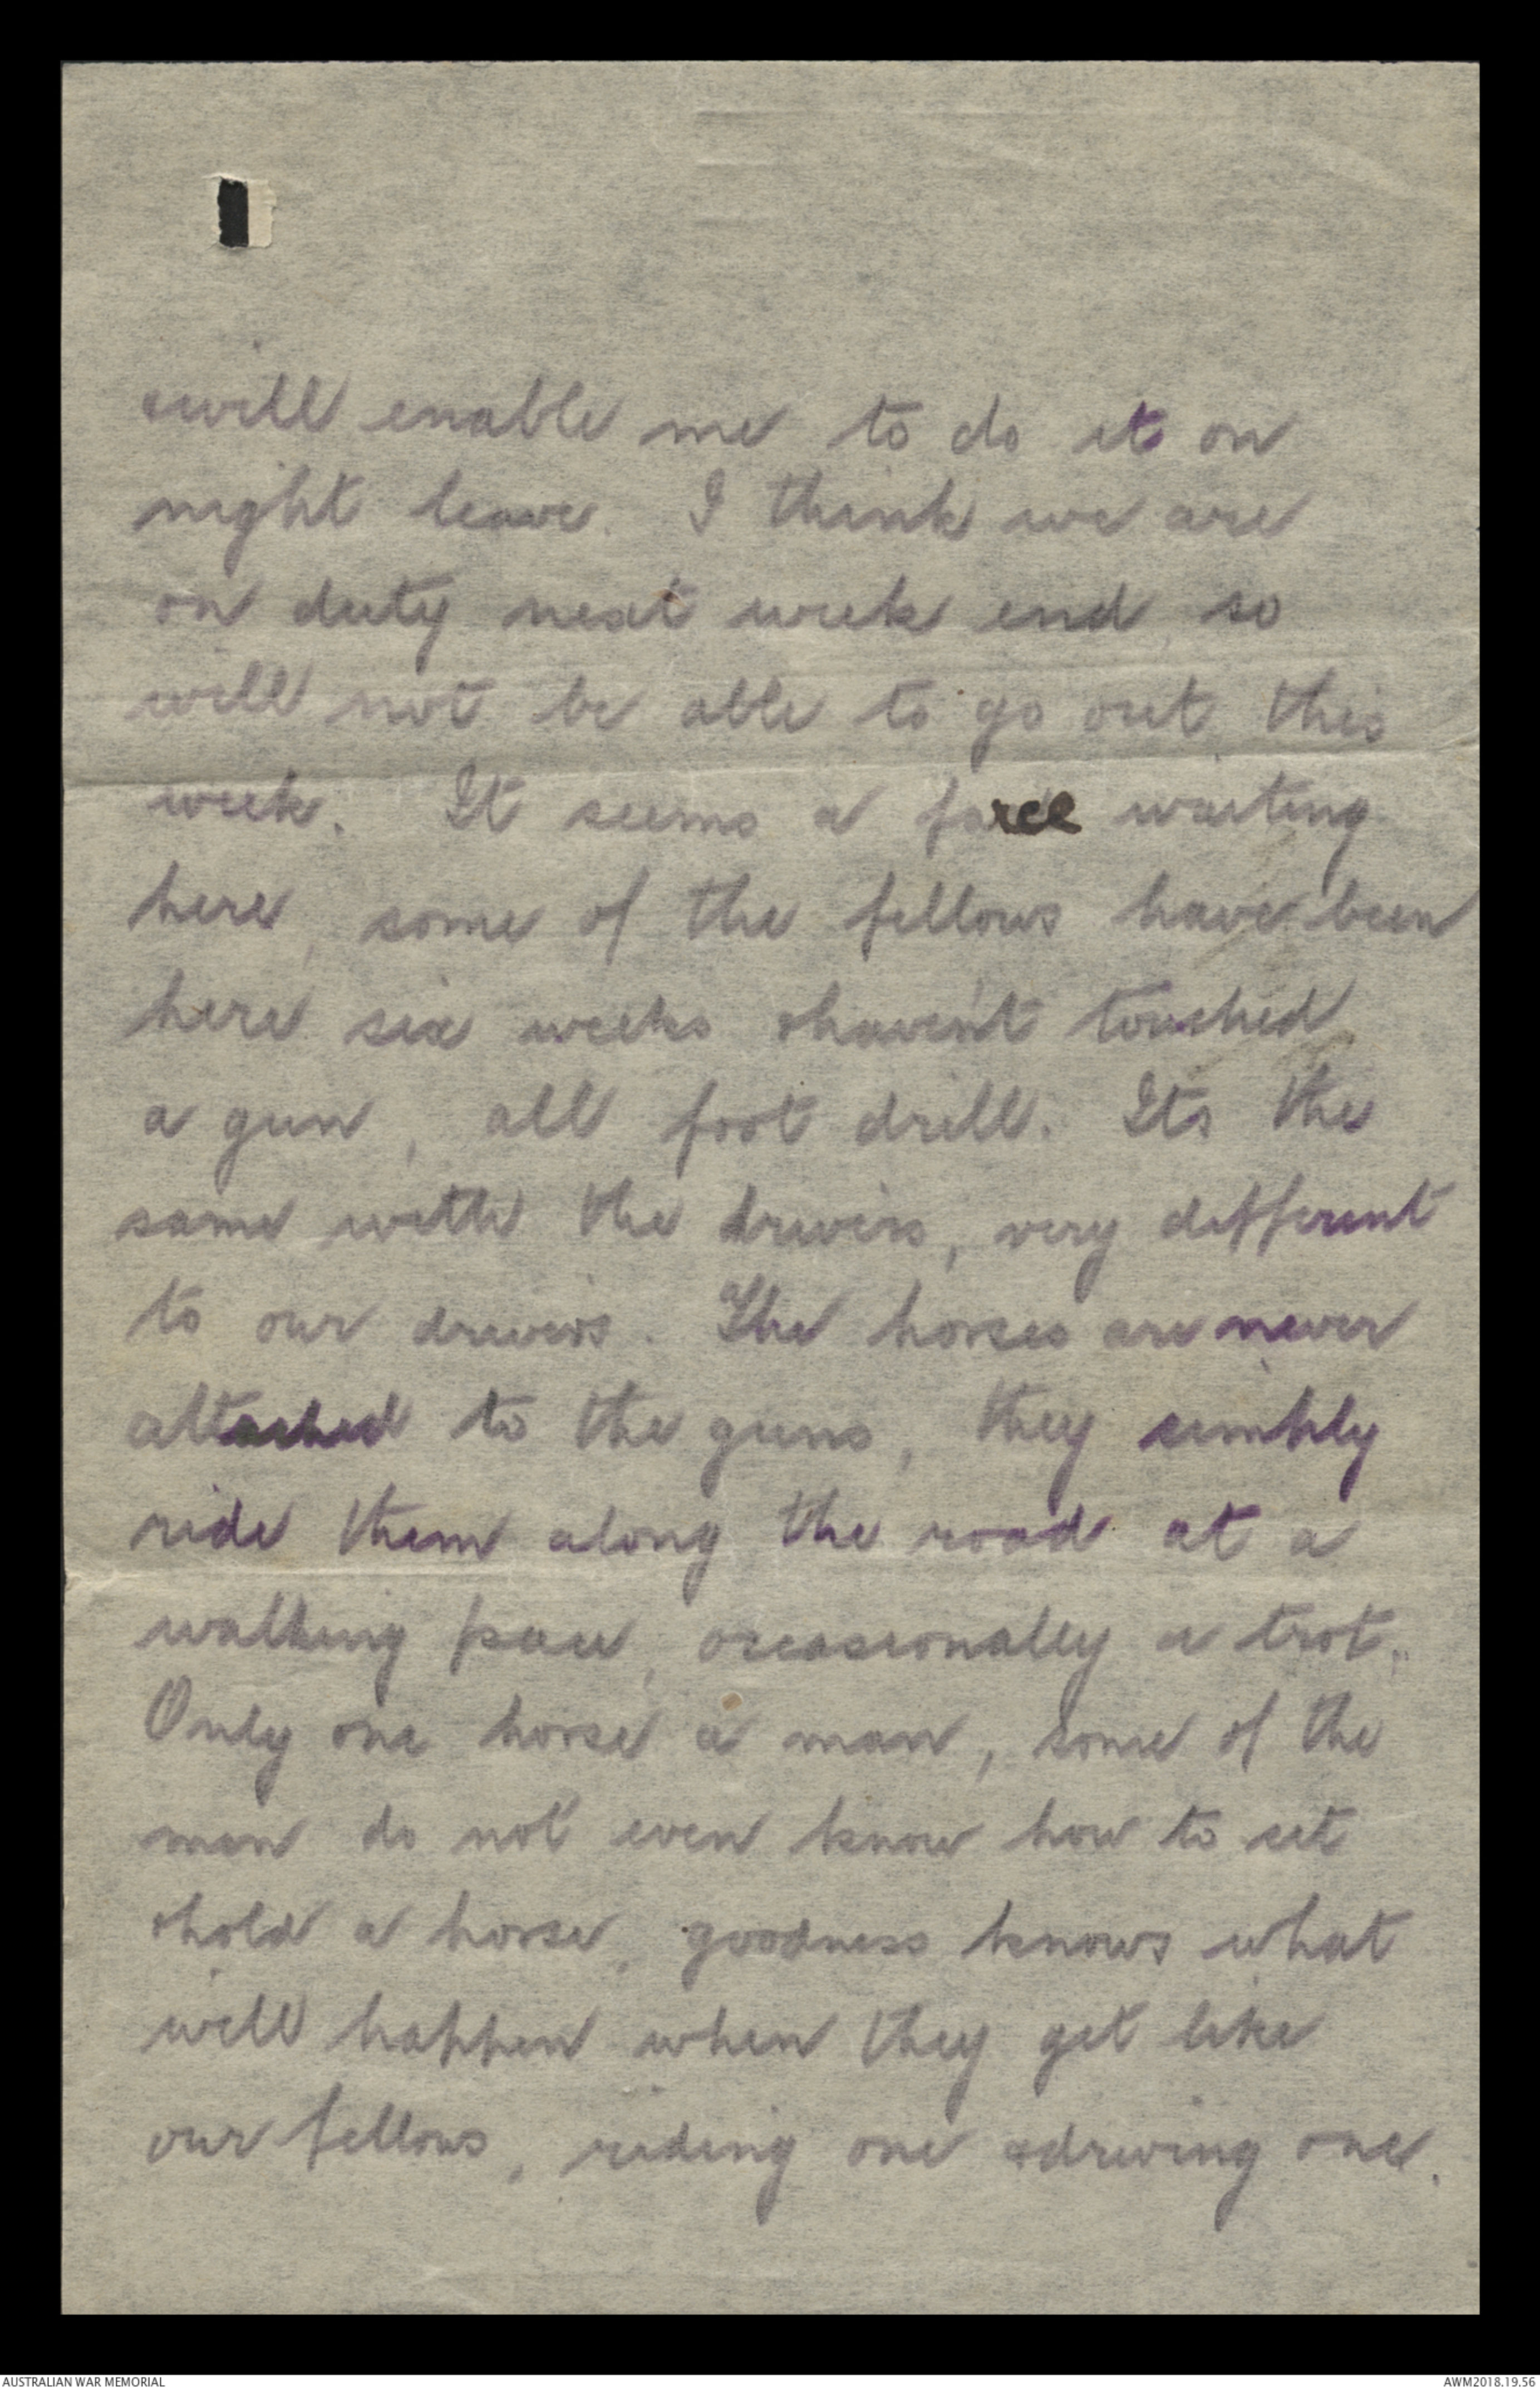 & will enable me to do it on
night leave. I think we are
on duty next week end, so
will not be able to go out this
week. It seems a farce waiting
here, some of the fellows have been
here six weeks & haven't touched
a gun, all foot drill. Its the
same with the drivers, very different
to our drivers. The horses are never
attached to the guns, they simply
ride them along the road at a
walking pace, occasionally a trot.
Only one horse a man, some of the
men do not even know how to sit
& hold a horse, goodness knows what
will happen when they get like
our fellows, riding one & driving one.
AUSTRALIAN WAR MEMORIAL
AWM2018.19.56